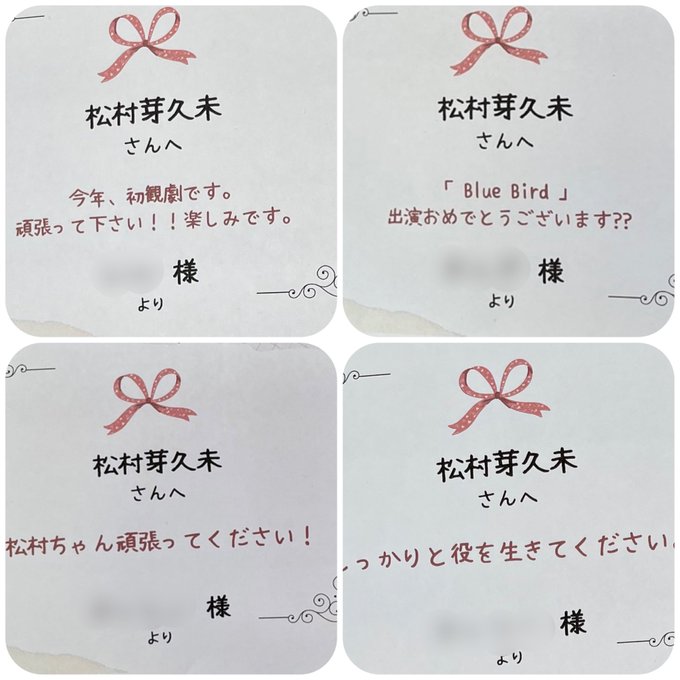 松村芽久未
さんへ
今年、初観劇です。
頑張って下さい！！楽しみです。
様
より
松村芽久未
さんへ
「 Blue Bird 」
出演おめでとうございます??
様
より
松村芽久未
さんへ
松村ちゃん頑張ってください！
様
より
松村芽久未
さんへ
しっかりと役を生きてください。
様
より